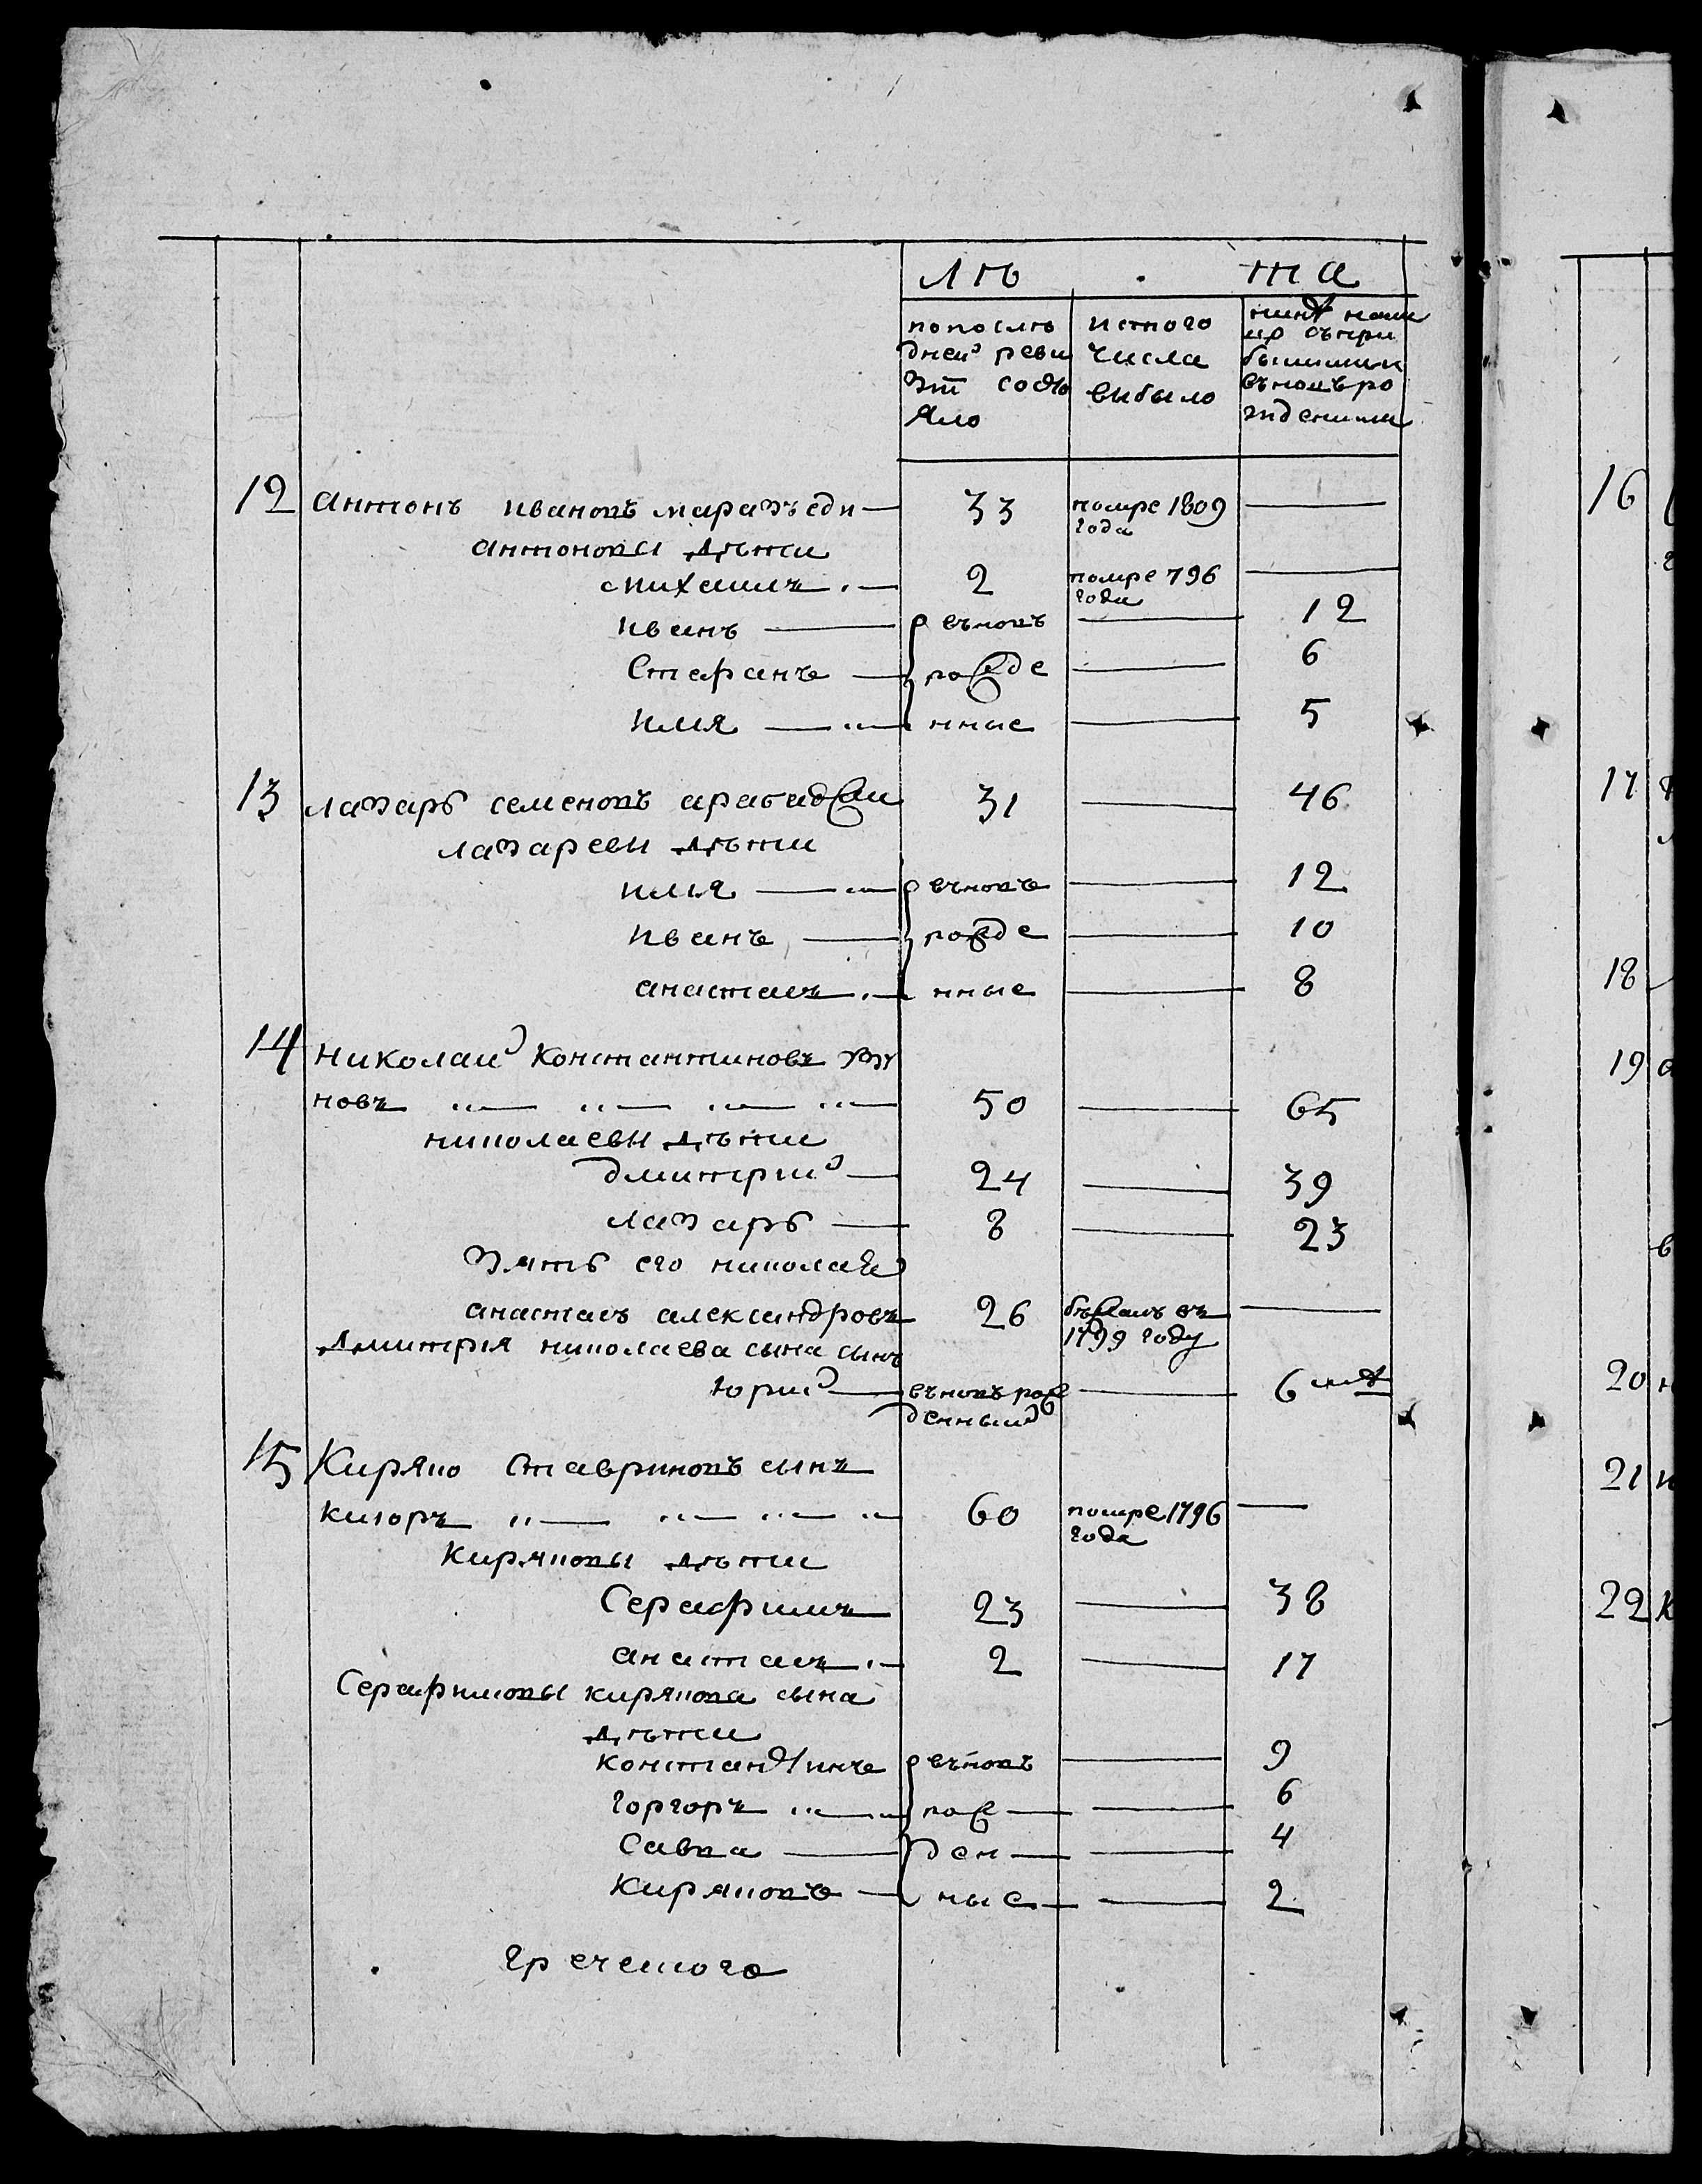 лѣ та
попослѣ
дней реви
зіи состо
яло
истого
числа
выбыло
нынѣ нали
цо съпри
былыми и
въновь ро
жденими
12 антонъ ивановъ 33 помре 1809
года
антоновы дѣти
михаилъ 2 помре 796
года
иванъ въновь 12
Стефанъ рожде 6
илия нные 5
13 лазарь семеновъ 31 46
лазаревы дѣти
илия въновь 12
иванъ рожде 10
анастасъ нные 8
14 николай константиновъ
новъ 50 65
николаевы дѣти
дмитрий 24 39
лазарь 8 23
зять его николая
анастасъ александровъ 26 бѣжалъ въ
1799 году
дмитрия николаева сына сынъ
юрий въновь рож 6
денный
15 Киряко Ставриновъ сынъ
кшоръ 60 помре 1796
года
Киряковы дѣти
Серафимъ 23 38
анастасъ 2 17
Серафимовы кирякова сына
дѣти
константинъ въновь 9
горгоръ рож 6
Савва ден 4
Киряковъ ные 2
греческого
16
17
18
19
20
21
22